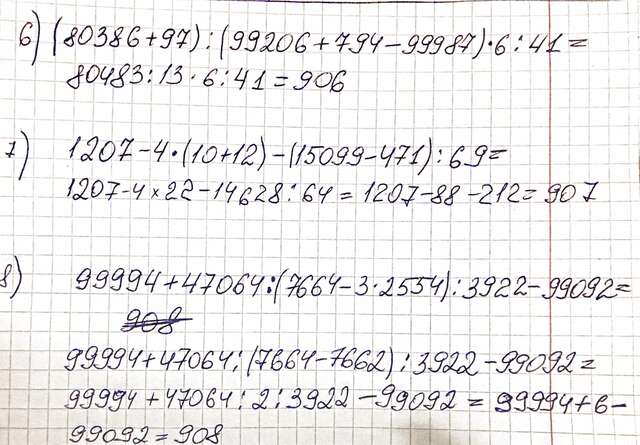 6) (80386+97):(99206+794-99987)·6:41=
80483:13·6:41=906
7) 1207-4·(10+12)-(15099-471):69=
1207-4×22-14628:64=1207-88-212=907
8) 99994+47064:(7664-3·2554):3922-99092=
908
99994+47064:(7664-7662):3922-99092=
99994+47064:2:3922-99092=99994+6-
99092=908